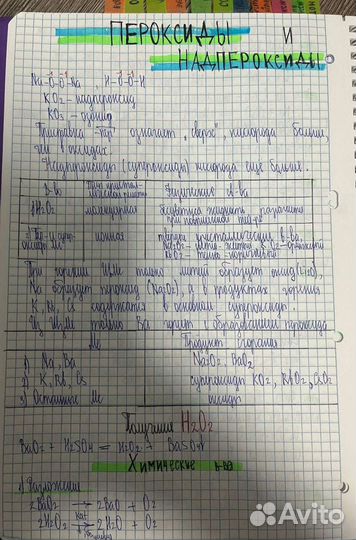 ПЕРОКСИДЫ И
НАДПЕРОКСИДЫ
Na-O-O-Na, H-O-O-H
KO2 - надпероксид
KO3 - озонид
Приставка "пер" означает "сверх", кислорода больше,
чем в оксидах.
Надпероксиды (супероксиды) кислорода ещё больше.
В-во Тип кристаллической решётки Физические св-ва
1) H2O2 молекулярная бесцветная жидкость, разлагается
при повышенной
ионная твёрдые кристаллические в-ва.
Na2O2 - светло-жёлтый
При горении ЩМ только литий образует оксид (Li2O),
Na образует пероксид (Na2O2), а в продуктах горения
K, Rb, Cs содержатся в основном супероксиды.
Из ЩЗМ только Ba горит с образованием пероксида
Ме Продукт сгорания
1) Na, Ba Na2O2, BaO2
2) K, Rb, Cs супероксиды KO2, RbO2, CsO2
3) Остальные Ме оксиды
Получение H2O2
BaO2 + H2SO4 = H2O2 + BaSO4↓
Химические св-ва
1) Разложение
2BaO2 → 2BaO + O2
2H2O2 → 2H2O + O2
Avito